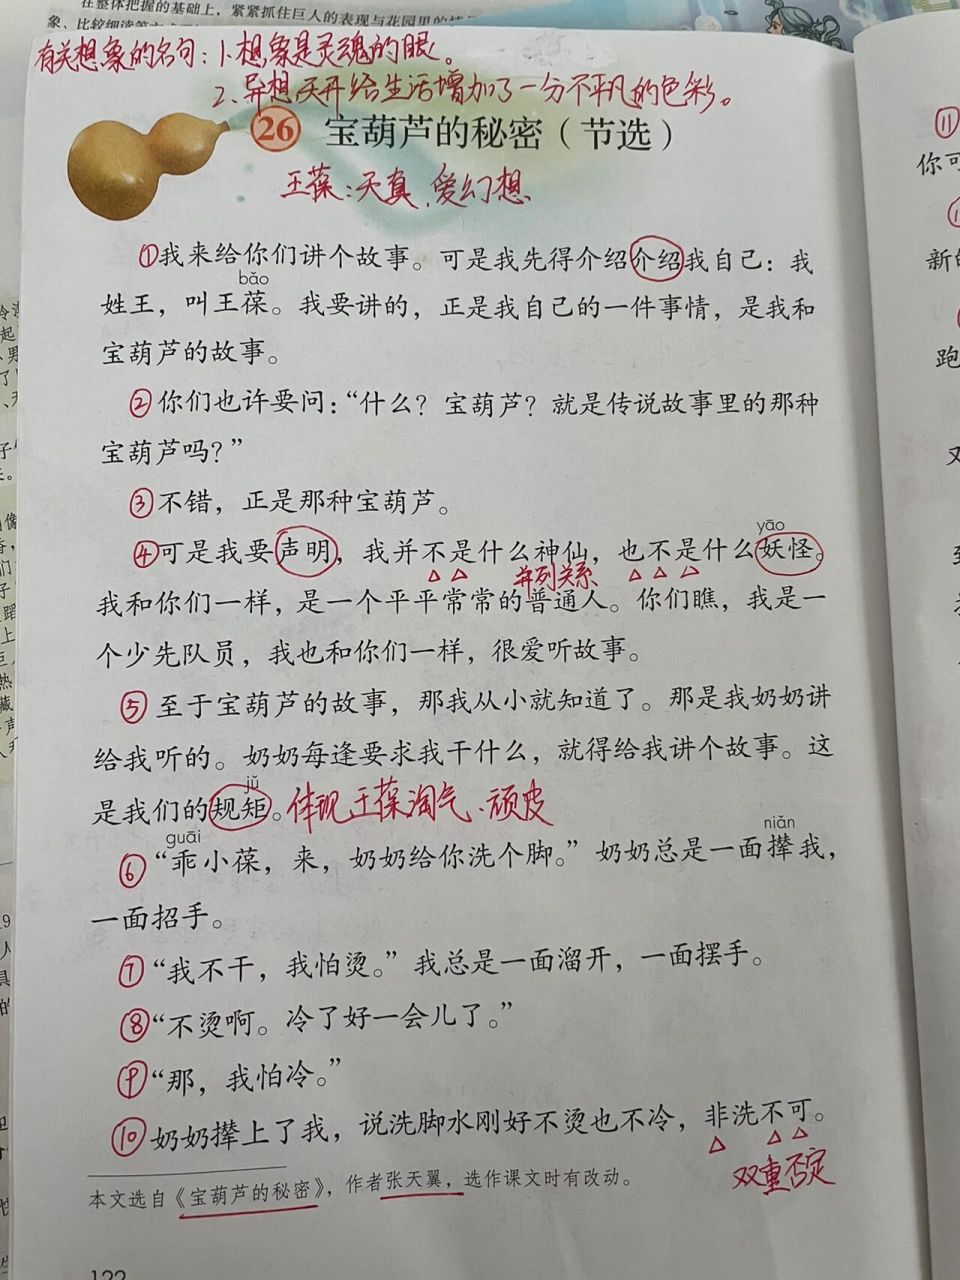 在整体把握的基础上，紧紧抓住巨人的表现与花园里的
象、比较细读等
有关想象的名句：1、想象是灵魂的眼。
2、异想天开给生活增加了一分不平凡的色彩。
26 宝葫芦的秘密（节选）
王葆：天真、爱幻想
①我来给你们讲个故事。可是我先得介绍介绍我自己：我
bǎo
姓王，叫王葆。我要讲的，正是我自己的一件事情，是我和
宝葫芦的故事。
②你们也许要问：“什么？宝葫芦？就是传说故事里的那种
宝葫芦吗？”
③不错，正是那种宝葫芦。
yāo
④可是我要声明，我并不是什么神仙，也不是什么妖怪。
并列关系
我和你们一样，是一个平平常常的普通人。你们瞧，我是一
个少先队员，我也和你们一样，很爱听故事。
⑤至于宝葫芦的故事，那我从小就知道了。那是我奶奶讲
给我听的。奶奶每逢要求我干什么，就得给我讲个故事。这
jǔ
是我们的规矩。体现王葆淘气、顽皮
guāi niǎn
⑥“乖小葆，来，奶奶给你洗个脚。”奶奶总是一面撵我，
一面招手。
⑦“我不干，我怕烫。”我总是一面溜开，一面摆手。
⑧“不烫啊。冷了好一会儿了。”
⑨“那，我怕冷。”
⑩奶奶撵上了我，说洗脚水刚好不烫也不冷，非洗不可。
双重否定
本文选自《宝葫芦的秘密》，作者张天翼，选作课文时有改动。
122
⑪
你可
新的
跑